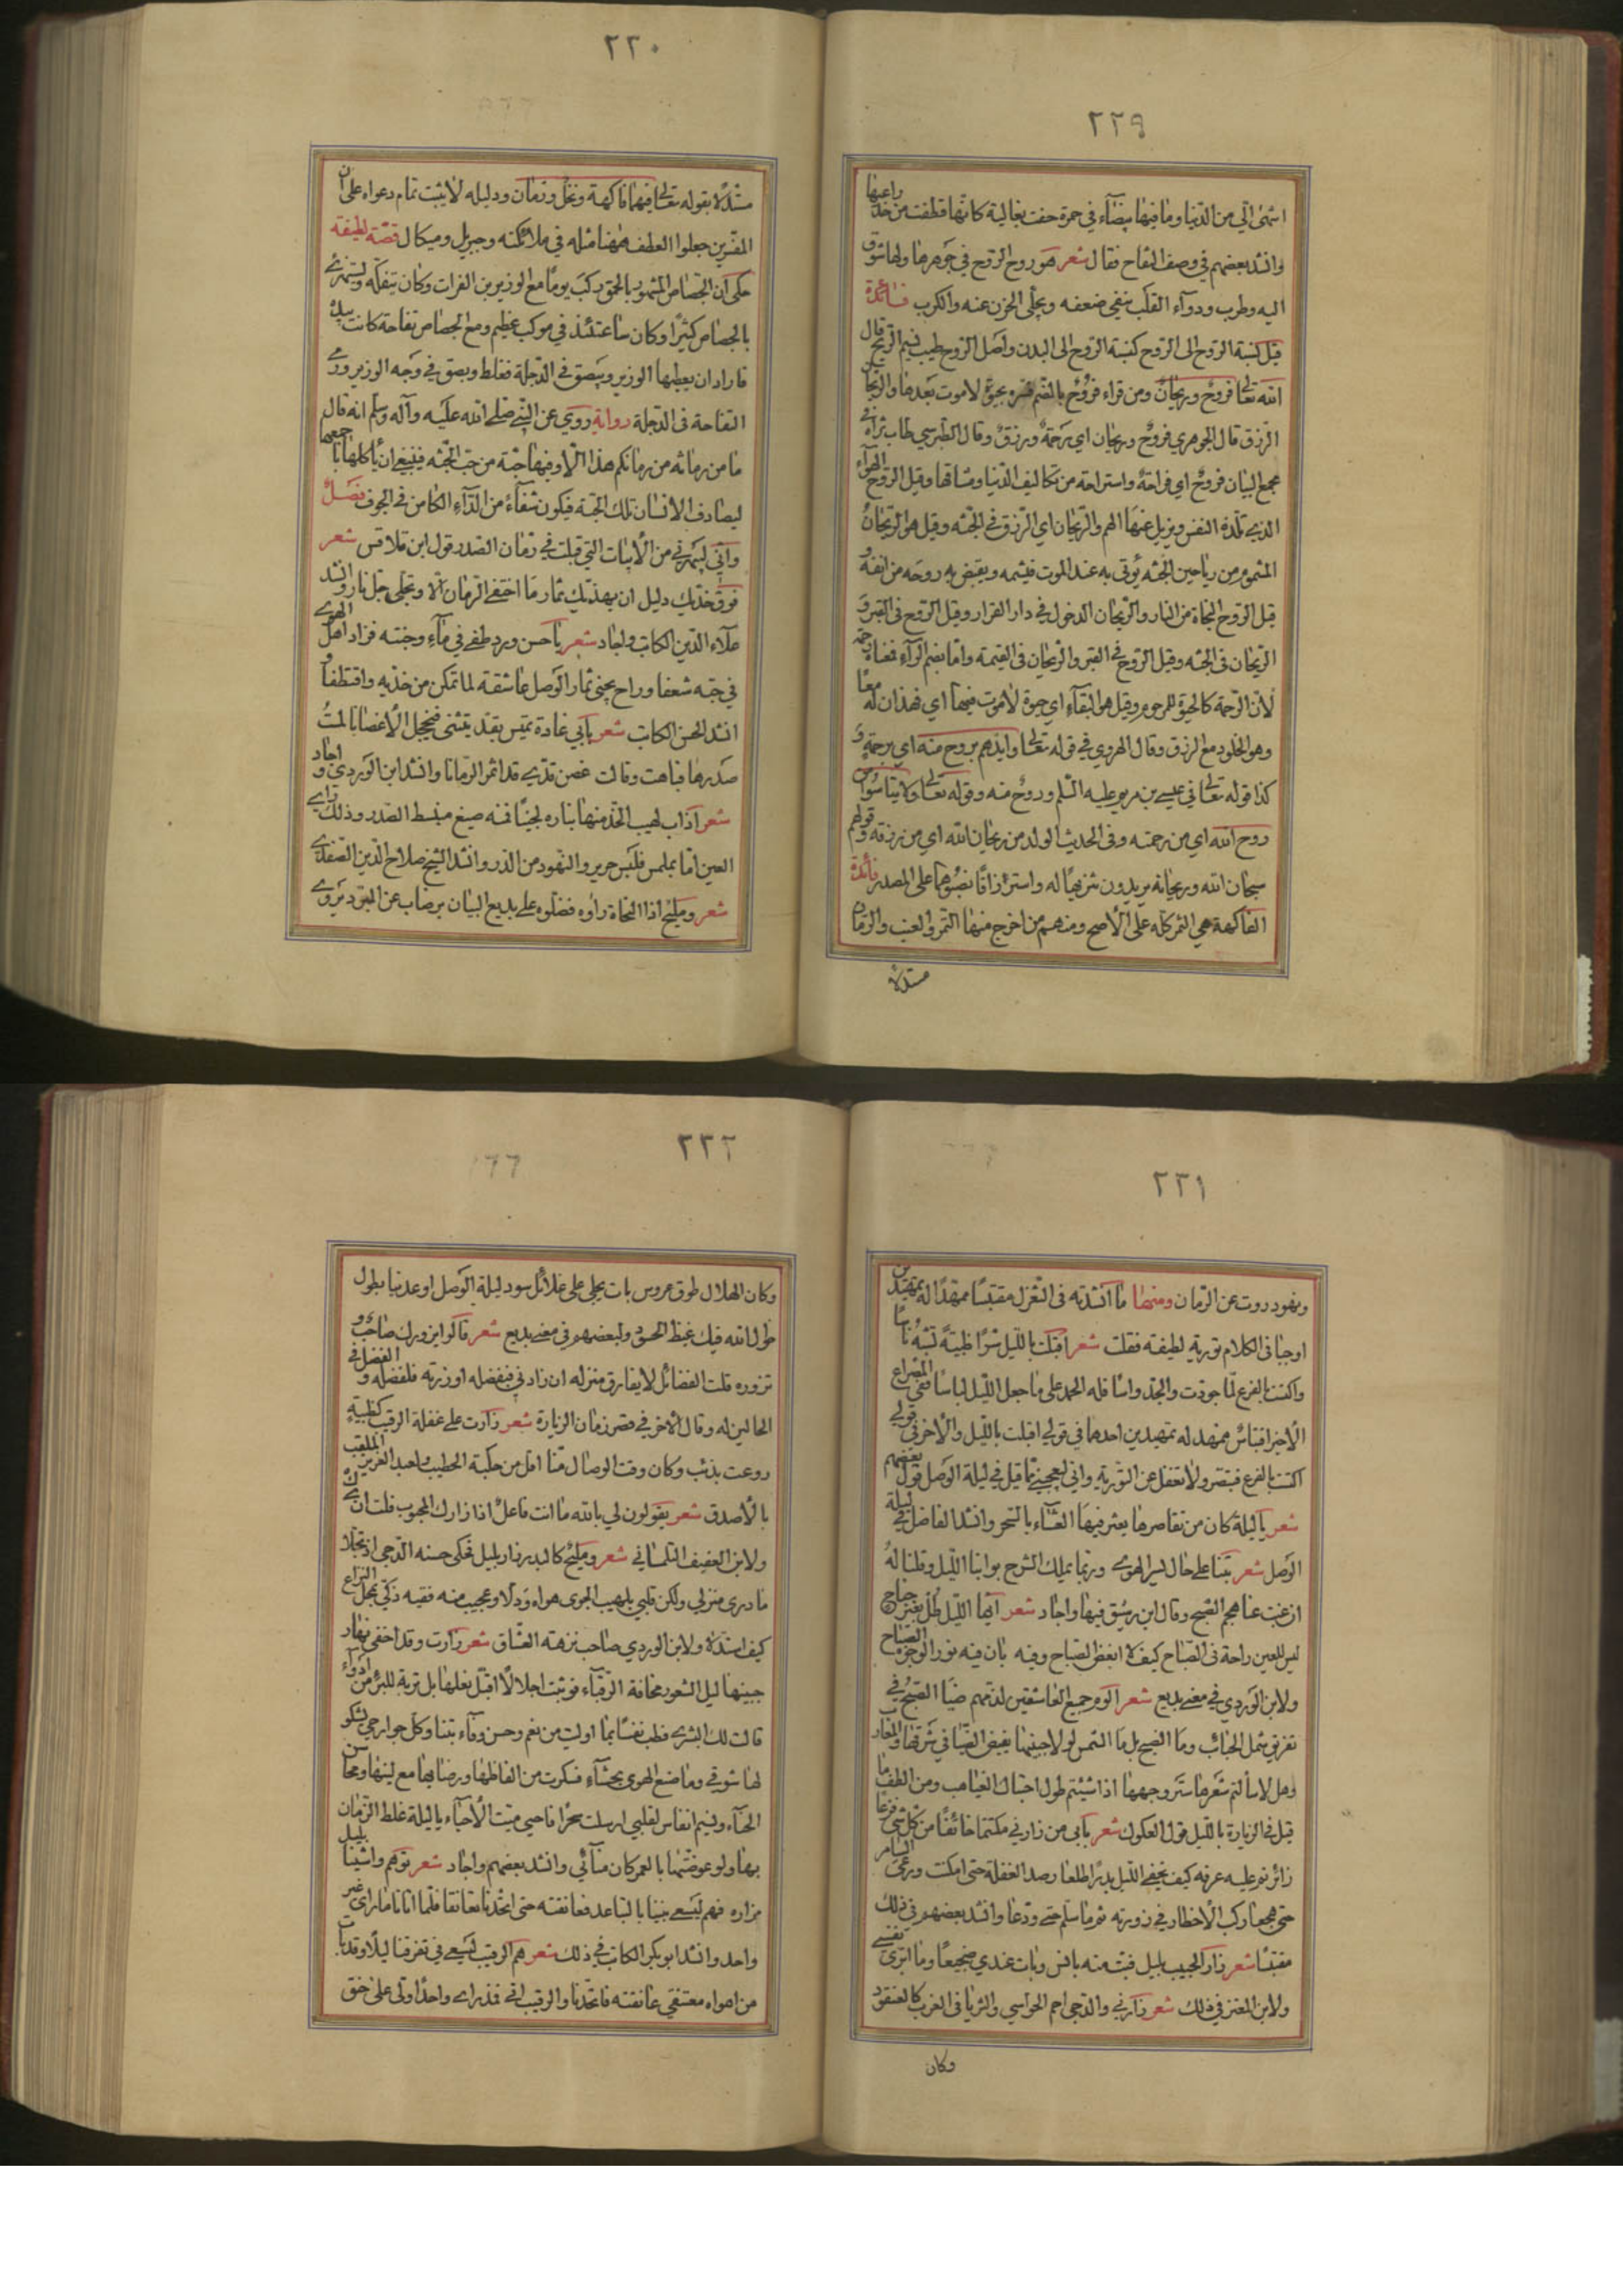 ٢٢٩
اشهى الي من الدنيا وما فيها بيضاء في حمرة حفت بغالية كانها قطفت من خد راعيها
وانشد بعضهم في وصف التفاح فقال شعر هو روح الروح في جوهرها ولها شوق
اليه وطرب ودواء القلب ينفي ضعفه ويجلى الحزن عنه والكرب فائدة
قيل نسبة الروح الى الروح كنسبة الروح الى البدن واصل الروح طيب نسيم الريح قال
الله تعالى فروح وريحان ومن قراء فروح بالضم فسره بحيوة لا موت بعدها والريحان
الرزق قال الجوهري فروح وريحان اي رحمة ورزق وقال الطبرسي طاب ثراه في
مجمع البيان فروح اي فراحة واستراحة من تكاليف الدنيا ومشاقها وقيل الروح الهواء
الذي تلذه النفس ويزيل عنها الهم والريحان اي الرزق في الجنه وقيل هو الريحان
المشموم من رياحين الجنه يؤتى به عند الموت فيشمه ويقبض به روحه من انفه و
قيل الروح النجاة من النار والريحان الدخول في دار القرار وقيل الروح في القبر و
الريحان في الجنه وقيل الروح في القبر والريحان في القيمة واما بضم الراء فمعناه رحمة
لان الرحمة كالحيوة للمرحوم وقيل هو البقاء اي حيوة لا موت فيها اي فهذان له معا
وهو الخلود مع الرزق وقال الهروي في قوله تعالى وايدهم بروح منه اي برحمة و
كذا قوله تعالى في عيسى بن مريم عليه السلم وروح منه وقوله تعالى ولا تيأسوا من
روح الله اي من رحمته وفي الحديث الولد من ريحان الله اي من رزقه وقولهم
سبحان الله وريحانه يريدون تنزيها له واسترزاقا نصبوهما على المصدر فائدة
الفاكهة هي الثمر كله على الاصح ومنهم من اخرج منها التمر والعنب والرمان
مستدلا
٢٢٠
مستدلا بقوله تعالى فيها فاكهة ونخل ورمان ودليله لا يثبت تمام دعواه على ان
المفسرين جعلوا العطف ههنا مثله في ملائكته وجبريل وميكال قصة لطيفة
حكى ان الجصاص المشهور بالحمق ركب يوما مع الوزير بن الفرات وكان يتفكه ويتمسخر
بالجصاص كثيرا وكان ساعتئذ في موكب عظيم ومع الجصاص تفاحة كانت بيده
فاراد ان يعطيها الوزير ويبصق في الدجلة فغلط وبصق في وجه الوزير ورمى
التفاحة في الدجلة رواية روي عن النبي صلى الله عليه وآله وسلم انه قال
ما من رمانه من رمانكم هذا الا وفيها حبة من حب الجنه فينبغي ان ياكلها باجمعها
ليصادف الانسان تلك الحبة فيكون شفاء من الداء الكامن في الجوف فصل
واني ليسرني من الابيات التي قيلت في رمان الصدر قول ابن قلاقس شعر
فوق خديك دليل ان نهديك ثمار ما اختفى الرمان الا وتجلى جلنار وانشد
علاء الدين الكاتب واجاد شعر يا حسن ورد طفي في ماء وجنته فزاد اهل الهوى
في حبه شغفا وراح يجنى ثمار الوصل عاشقه لما تمكن من خديه واقتطفا و
انشد الحسن الكاتب شعر بابي غادة تميس بقد يتثنى فيخجل الاغصانا لمست
صدرها فباهت وقالت غصن قدي قد اثمر الرمانا وانشد ابن الوردي واجاد
شعر اذاب لهيب الخد منها بناره لجينا فنه صيغ منبسط الصدر وذلك راي
العين اما بملمس فلبس حرير والنهود من الدر وانشد الشيخ صلاح الدين الصفدي
شعر ومليح اذا النحاة راوه فضلوه على بديع البيان برضاب عن المبرد يروى
٢٢١
ونهود روت عن الرمان ومنها ما انشدته في الغزل مقتبسا ممهدا له بتمهيدين
اوجبا في الكلام تورية لطيفة فقلت شعر اقبلت بالليل سرا ظبية تشبه ناسا
واكتست بالفرع لما جودت والجد واسا فله الحمد على ما جعل الليل لباسا ففي المصراع
الاخير اقتباس ممهد له تمهيدين احدهما في قولي اقبلت بالليل والاخر في قولي
اكتست بالفرع فتبصر ولا تغفل عن التورية واني ليعجبني مما قيل في ليلة الوصل قول بعضهم
شعر يا ليلة كان من تقاصرها يعثر فيها العشاء بالسحر وانشد الفاضل في ليلة
الوصل شعر بتنا على حال يسر الهوى وربما يملك الشرح بوابنا الليل وقلنا له
ان غبت عنا هجم الصبح وقال ابن رشيق فيها واجاد شعر ايها الليل طل بغير جناح
ليس للعين راحة في الصباح كيف لا ابغض الصباح وفيه بان فيه نور الوجوه الصباح
ولابن الوردي في معنى بديع شعر الوم جميع العاشقين لذمهم ضيا الصبح في
تفريق شمل الحبائب وما الصبح بل ما الشمس لولا جبينها يفيض الضيا في شرقها والمغارب
وهل لا سالتم شعرها ستر وجهها اذا شئتم طول احتباك الغياهب ومن الطف ما
قيل في الزيارة بالليل قول العكوك شعر بابي من زارني مكتتما خائفا من كل شئ فزعا
زائر نم عليه عرفه كيف يخفي الليل بدرا طلعا رصد الغفلة حتى امكنت ورعى السامر
حتى هجعا ركب الاخطار في زورته ثم ما سلم حتى ودعا وانشد بعضهم في ذلك
مقتبسا شعر زار الحبيب بليل فبت منه بانس وبات عندي ضجيعا وما ابرئ نفسي
ولابن المعتز في ذلك شعر زارني والدجى احم الحواشي والثريا في الغرب كالعنقود
وكان
٢٢٢
وكان الهلال طوق عروس بات يجلى على غلائل سود ليلة الوصل اوعدنيا بطول
طول الله فيك غيظ الحسود ولبعضهم في معنى بديع شعر قالوا يزورك صاحب و
تزوره قلت الفضائل لا يفارق منزله ان زارني فبفضله او زرته فلفضله والفضل في
الحالين له وقال الاخر في قصر زمان الزيارة شعر زارت على غفلة الرقيب كظبية
روعت بذئب وكان وقت الوصال منا اقل من جلسة الخطيب ولعبد العزيز الملقب
بالاصدق شعر يقولون لي بالله ما انت فاعل اذا زارك المحبوب قلت
ولابن العفيف التلمساني شعر ومليح كالبدر زار بليل فحكى حسنه الدجى اذ تجلا
ما درى منزلي ولكن قلبي بلهيب الجوى هواه ودلا وعجيب منه فقيه ذكي يجعل النزاع
كيف استدلا ولابن الوردي صاحب نزهة العشاق شعر زارت وقد اخفى نهار
جبينها ليل الشعور مخافة الرقباء فوثبت اجلالا اقبل نعلها بل تربة للبرء من ادواء
قالت لك البشرى فطب نفسا بما اوليت من نعم وحسن وفاء بتنا وكل جوارحي تشكو
لها شوقي وما صنع الهوى بحشاء فسكرت من الفاظها ورضابها مع لينها ومحاسن
الحناء ونسيم انفاس لقلبي ارسلت سحرا فاحيي ميت الاحياء يا ليلة غلط الزمان
بها ولو عوضتها بالعمر كان مناى وانشد بعضهم واجاد شعر توهم واشينا بليل
مزاره فهم ليسعى بيننا بالتباعد فعانقته حتى اتحدنا تعانقا فلما اتانا ما راى غير
واحد وانشد ابو بكر الكاتب في ذلك شعر هم الرقيب ليسعى في تفرقنا ليلا وقد بات
من اهواه معتنقي عانقته فاتحدنا والرقيب اتى فمذ راى واحدا ولى على حنق